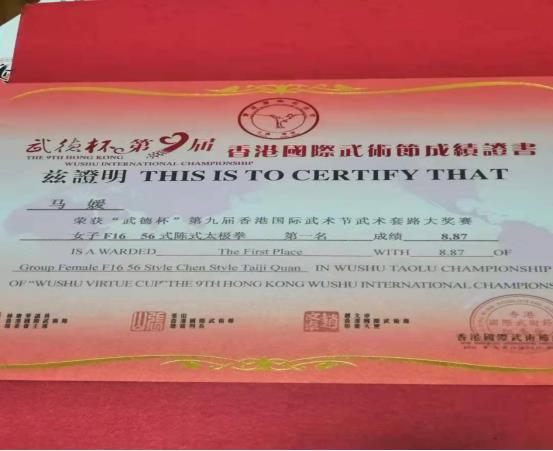 武德杯 第9届 香港國際武術節成績證書
THE 9TH HONG KONG
WUSHU INTERNATIONAL CHAMPIONSHIP
兹證明 THIS IS TO CERTIFY THAT
马 媛
荣获“武德杯”第九届香港国际武术节武术套路大奖赛
女子F16 56式陈式太极拳 第一名 成绩 8.87
IS A WARDED The First Place WITH 8.87 OF
Group Female F16 56 Style Chen Style Taiji Quan IN WUSHU TAOLU CHAMPIONSHIP
OF “WUSHU VIRTUE CUP” THE 9TH HONG KONG WUSHU INTERNATIONAL CHAMPIONS
香港
國際武術節
香港國際武術節